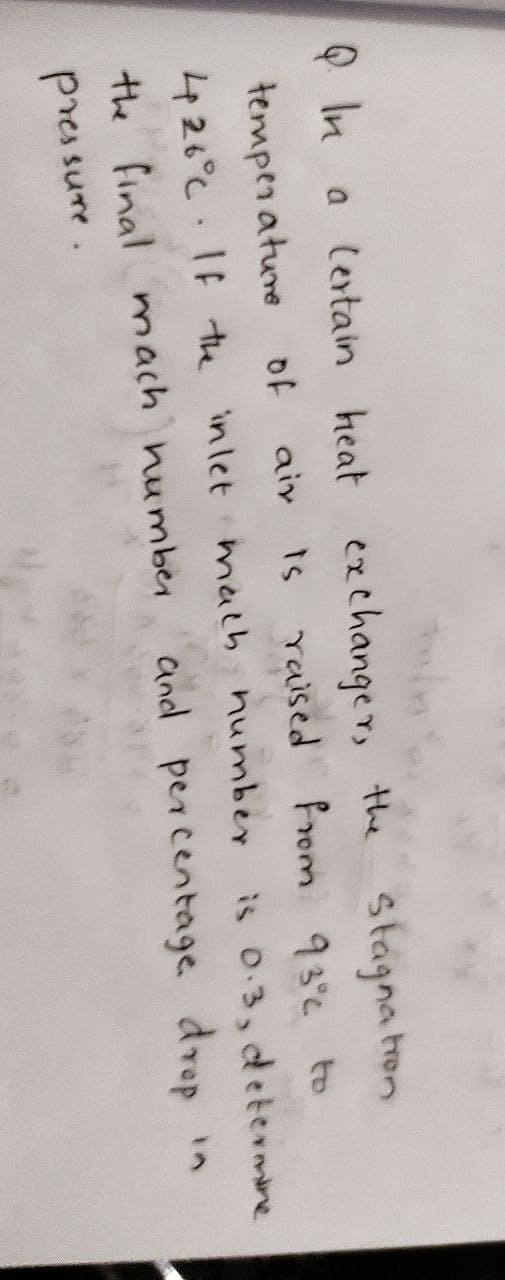 Q. In a certain heat exchanger, the stagnation
temperature of air is raised from 93°c to
426°c. If the inlet mach number is 0.3, determine
the final mach number and percentage drop in
pressure.